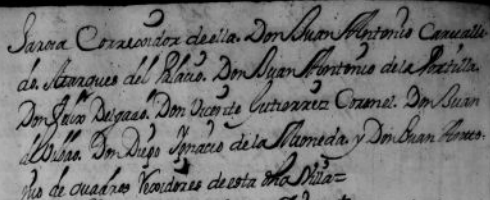 Garcia Corregidor de ella. Don Juan Antonio Carvallo
de. Marques del Palacio. Don Juan Antonio de la Portilla.
Don Felix Delgado. Don Vicente Gutierrez Coronel. Don Juan
de Bilbao. Don Diego Ignacio de la Moneda. y Don Juan Anto-
nio de quadros Rexidores de esta dha Villa=